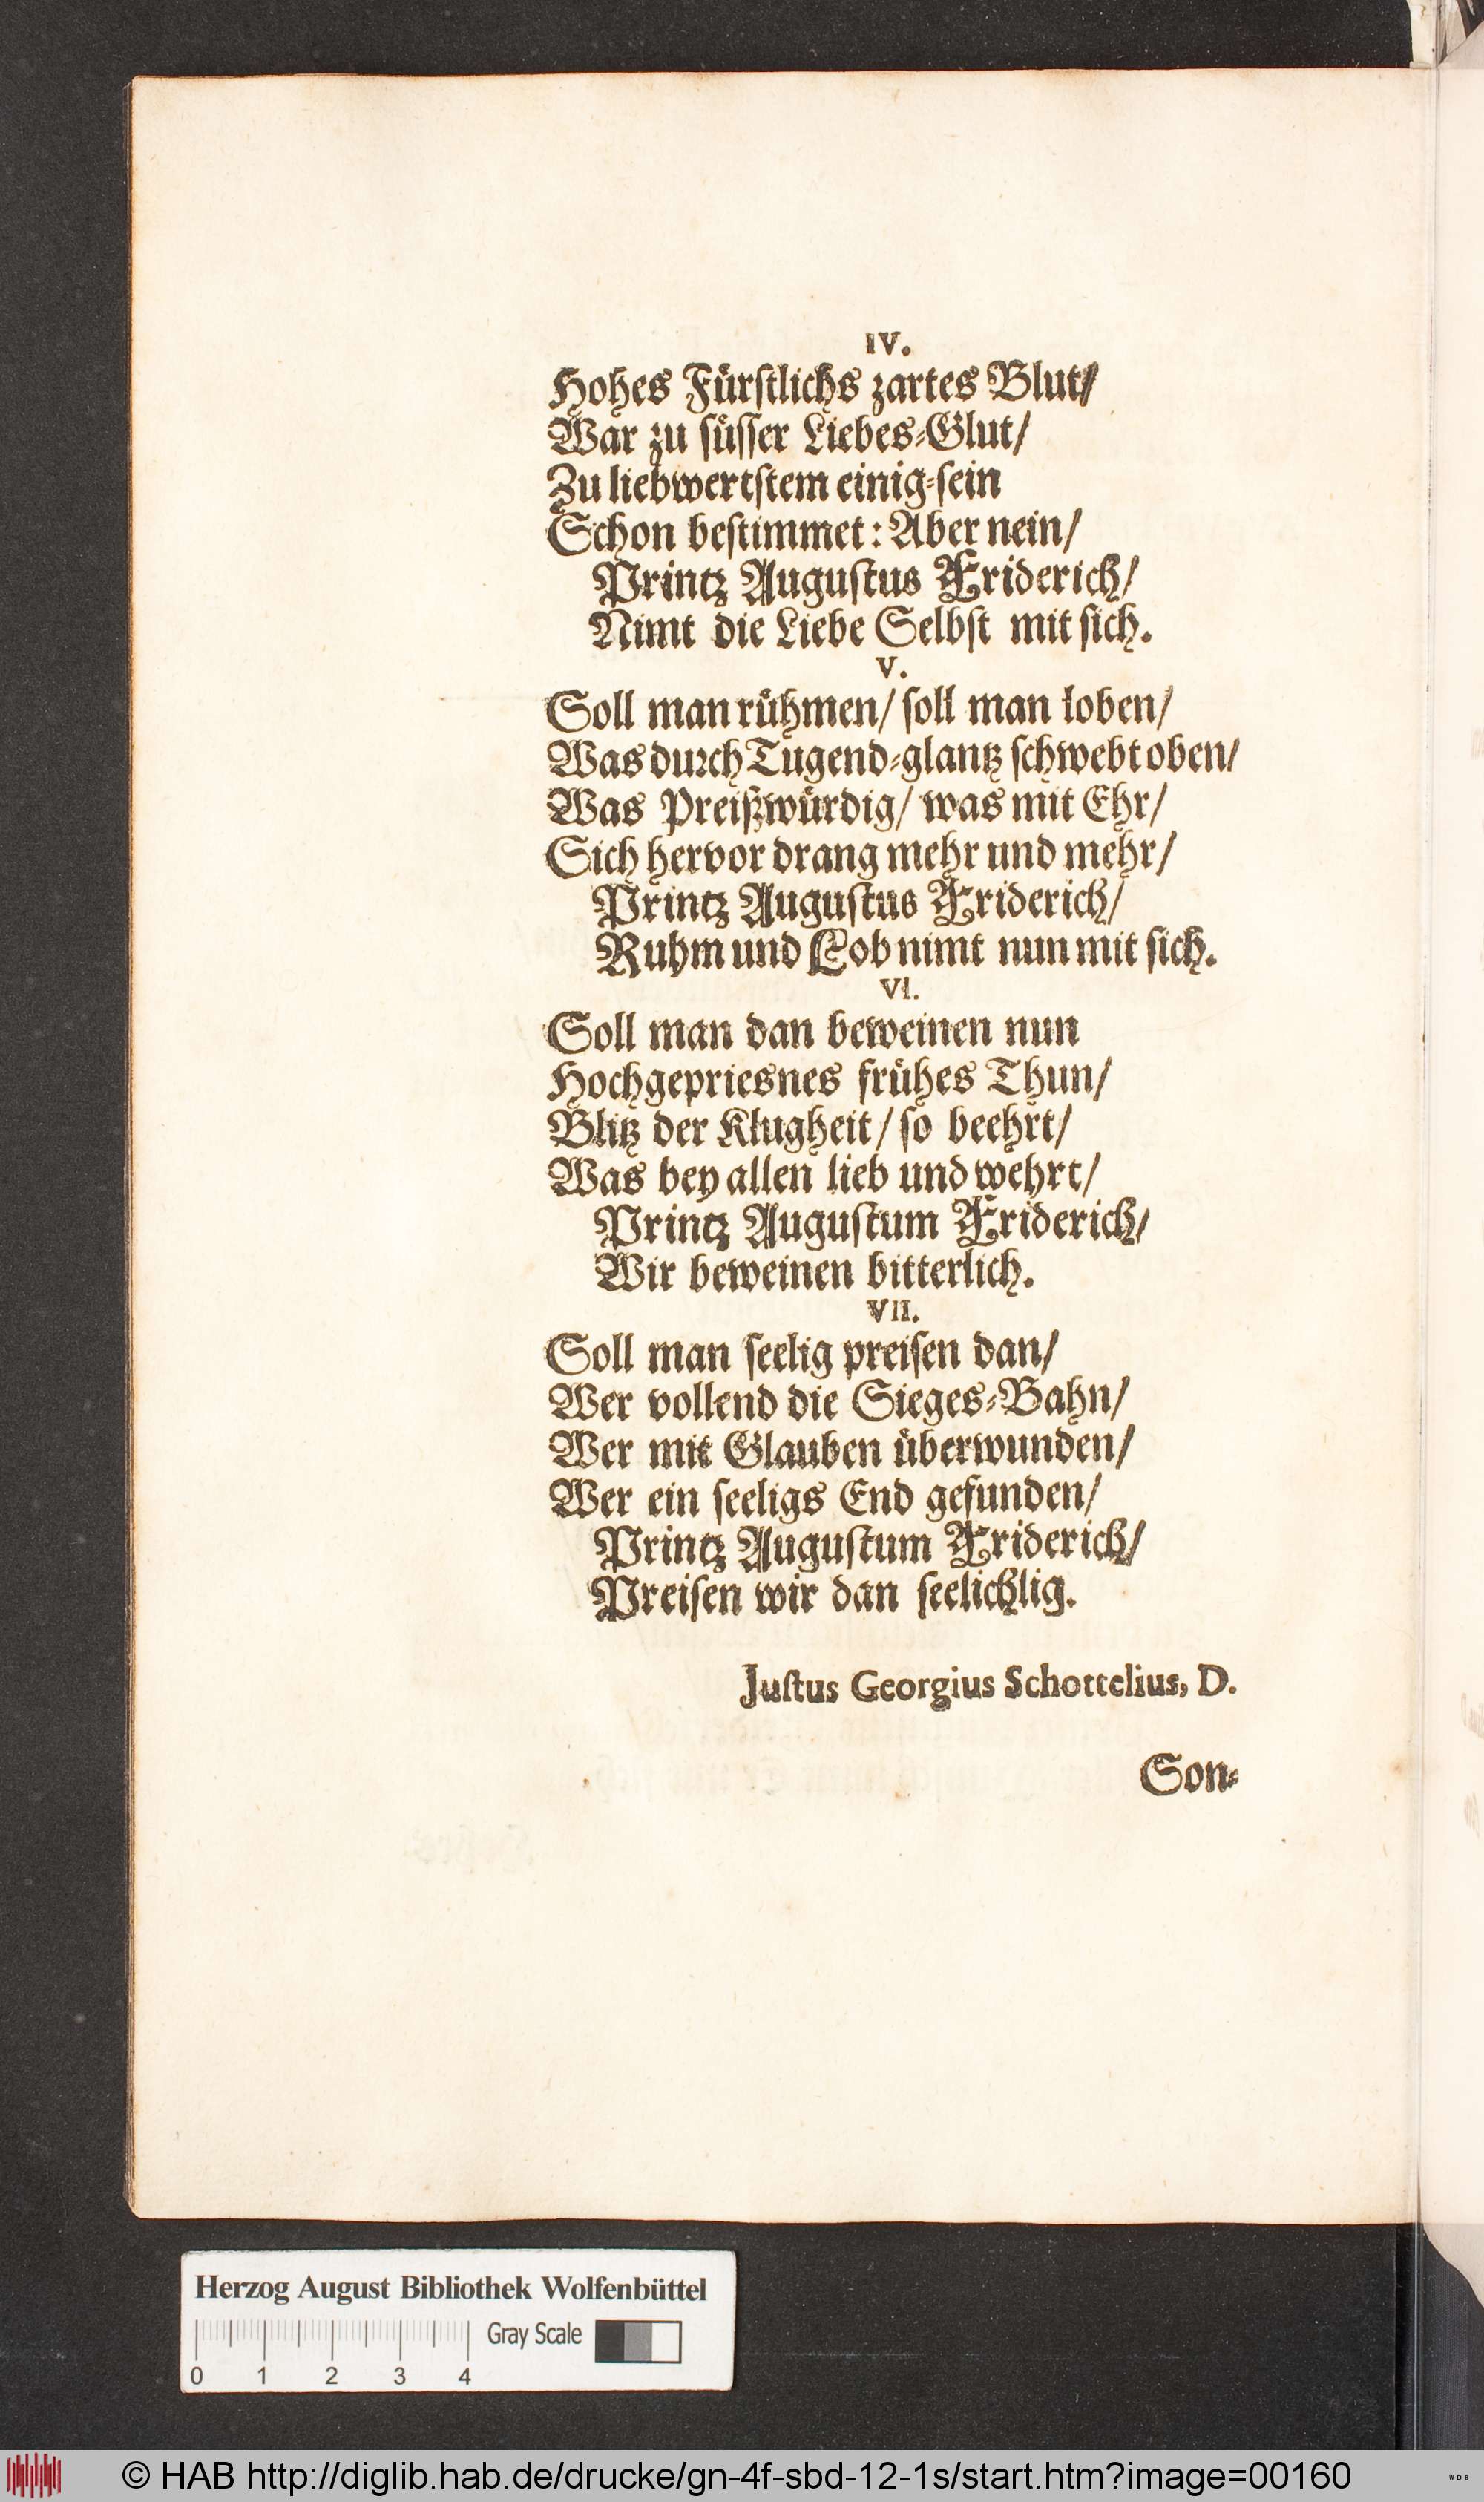 IV.
Hohes Fürſtlichs zartes Blut/
War zu ſüſſer Liebes-Glut/
Zu liebwertſtem einig-ſein
Schon beſtimmet: Aber nein/
Printz Auguſtus Friderich/
Nimt die Liebe Selbſt mit ſich.
V.
Soll man rühmen/ ſoll man loben/
Was durch Tugend-glantz ſchwebt oben/
Was Preißwürdig/ was mit Ehr/
Sich hervor drang mehr und mehr/
Printz Auguſtus Friderich/
Ruhm und Lob nimt nun mit ſich.
VI.
Soll man dan beweinen nun
Hochgepriesnes frühes Thun/
Blitz der Klugheit/ ſo beehrt/
Was bey allen lieb und wehrt/
Printz Auguſtum Friderich/
Wir beweinen bitterlich.
VII.
Soll man ſeelig preiſen dan/
Wer vollend die Sieges-Bahn/
Wer mit Glauben überwunden/
Wer ein ſeeligs End gefunden/
Printz Auguſtum Friderich/
Preiſen wir dan ſeelichlig.
Juſtus Georgius Schottelius, D.
Son-
Herzog August Bibliothek Wolfenbüttel
Gray Scale
0 1 2 3 4
© HAB http://diglib.hab.de/drucke/gn-4f-sbd-12-1s/start.htm?image=00160
WDB